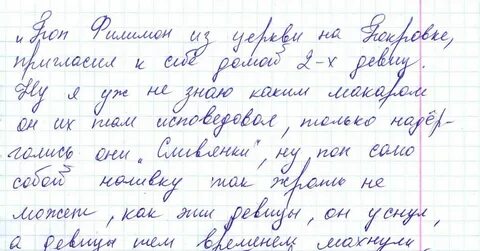 „Поп Филимон из церкви на Покровке,
пригласил к себе домой 2-х девиц.
Ну я уж не знаю каким макаром
он их там исповедовал, только надёр-
гались они „Сливянки", ну поп само
собой наливку так жрать не
может, как эти девицы, он уснул,
а девицы тем временем махнули